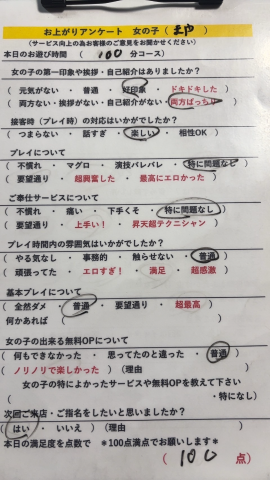 お上がりアンケート 女の子（ ）
（サービス向上の為お客様のご意見をお聞かせください）
本日のお遊び時間 （ 100 分コース）
女の子の第一印象や挨拶・自己紹介はありましたか？
（ 元気がない ・ 普通 ・ 好印象 ・ ドキドキした ）
（ 両方ない・挨拶がない・自己紹介がない・両方ばっちり ）
接客時（プレイ時）の対応はいかがでしたか？
（ つまらない ・ 話すぎ ・ 楽しい ・ 相性OK ）
プレイについて
（ 不慣れ ・ マグロ ・ 演技バレバレ ・ 特に問題なし
（ 要望通り ・ 超興奮した ・ 最高にエロかった ）
ご奉仕サービスについて
（ 不慣れ ・ 痛い ・ 下手くそ ・ 特に問題なし ）
（ 要望通り ・ 上手い！ ・ 昇天超テクニシャン ）
プレイ時間内の雰囲気はいかがでしたか？
（ やる気なし ・ 事務的 ・ 触らせない ・ 普通 ）
（ 頑張ってた ・ エロすぎ！ ・ 満足 ・ 超感激 ）
基本プレイについて
（ 全然ダメ ・ 普通 ・ 要望通り ・ 超最高 ）
何かあれば（ ）
女の子の出来る無料OPについて
（ 何もできなかった ・ 思ってたのと違った ・ 普通 ）
（ ノリノリで楽しかった ） （理由 ）
女の子の特によかったサービスや無料OPを教えて下さい
（ ・特になし）
次回ご来店・ご指名をしたいと思いましたか？
（ はい ・ いいえ ） （理由 ）
本日の満足度を点数で ＊100点満点でお願いします＊
（ 100 点）